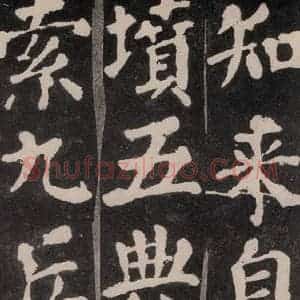 知来自
墳五典
索九丘
Shufaziliao.COM